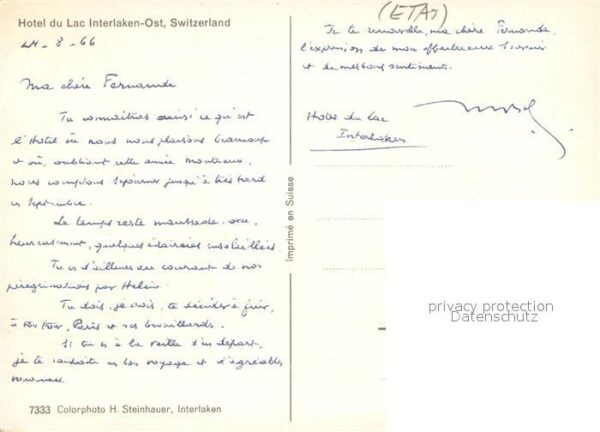 Hotel du Lac Interlaken-Ost, Switzerland
24-8-66
Ma chère Fernande
Tu connaîtras ainsi ce qu'est
l'Hotel où nous nous plaisons beaucoup
et où, oubliant cette année Montreux,
nous comptons séjourner jusqu'à très tard
en Septembre.
Le temps reste maussade avec,
heureusement, quelques éclaircies ensoleillées.
Tu es d'ailleurs au courant de nos
pérégrinations par Hélène.
Tu dois, je crois, te décider à fuir,
à ton tour, Paris et ses brouillards.
Si tu es à la veille d'un départ,
je te souhaite un bon voyage et d'agréables
vacances.
7333 Colorphoto H. Steinhauer, Interlaken
Imprimé en Suisse
(ETAT)
Je te renouvelle, ma chère Fernande,
l'expression de mon affectueux souvenir
et de meilleurs sentiments.
Hotel du Lac
Interlaken
privacy protection
Datenschutz